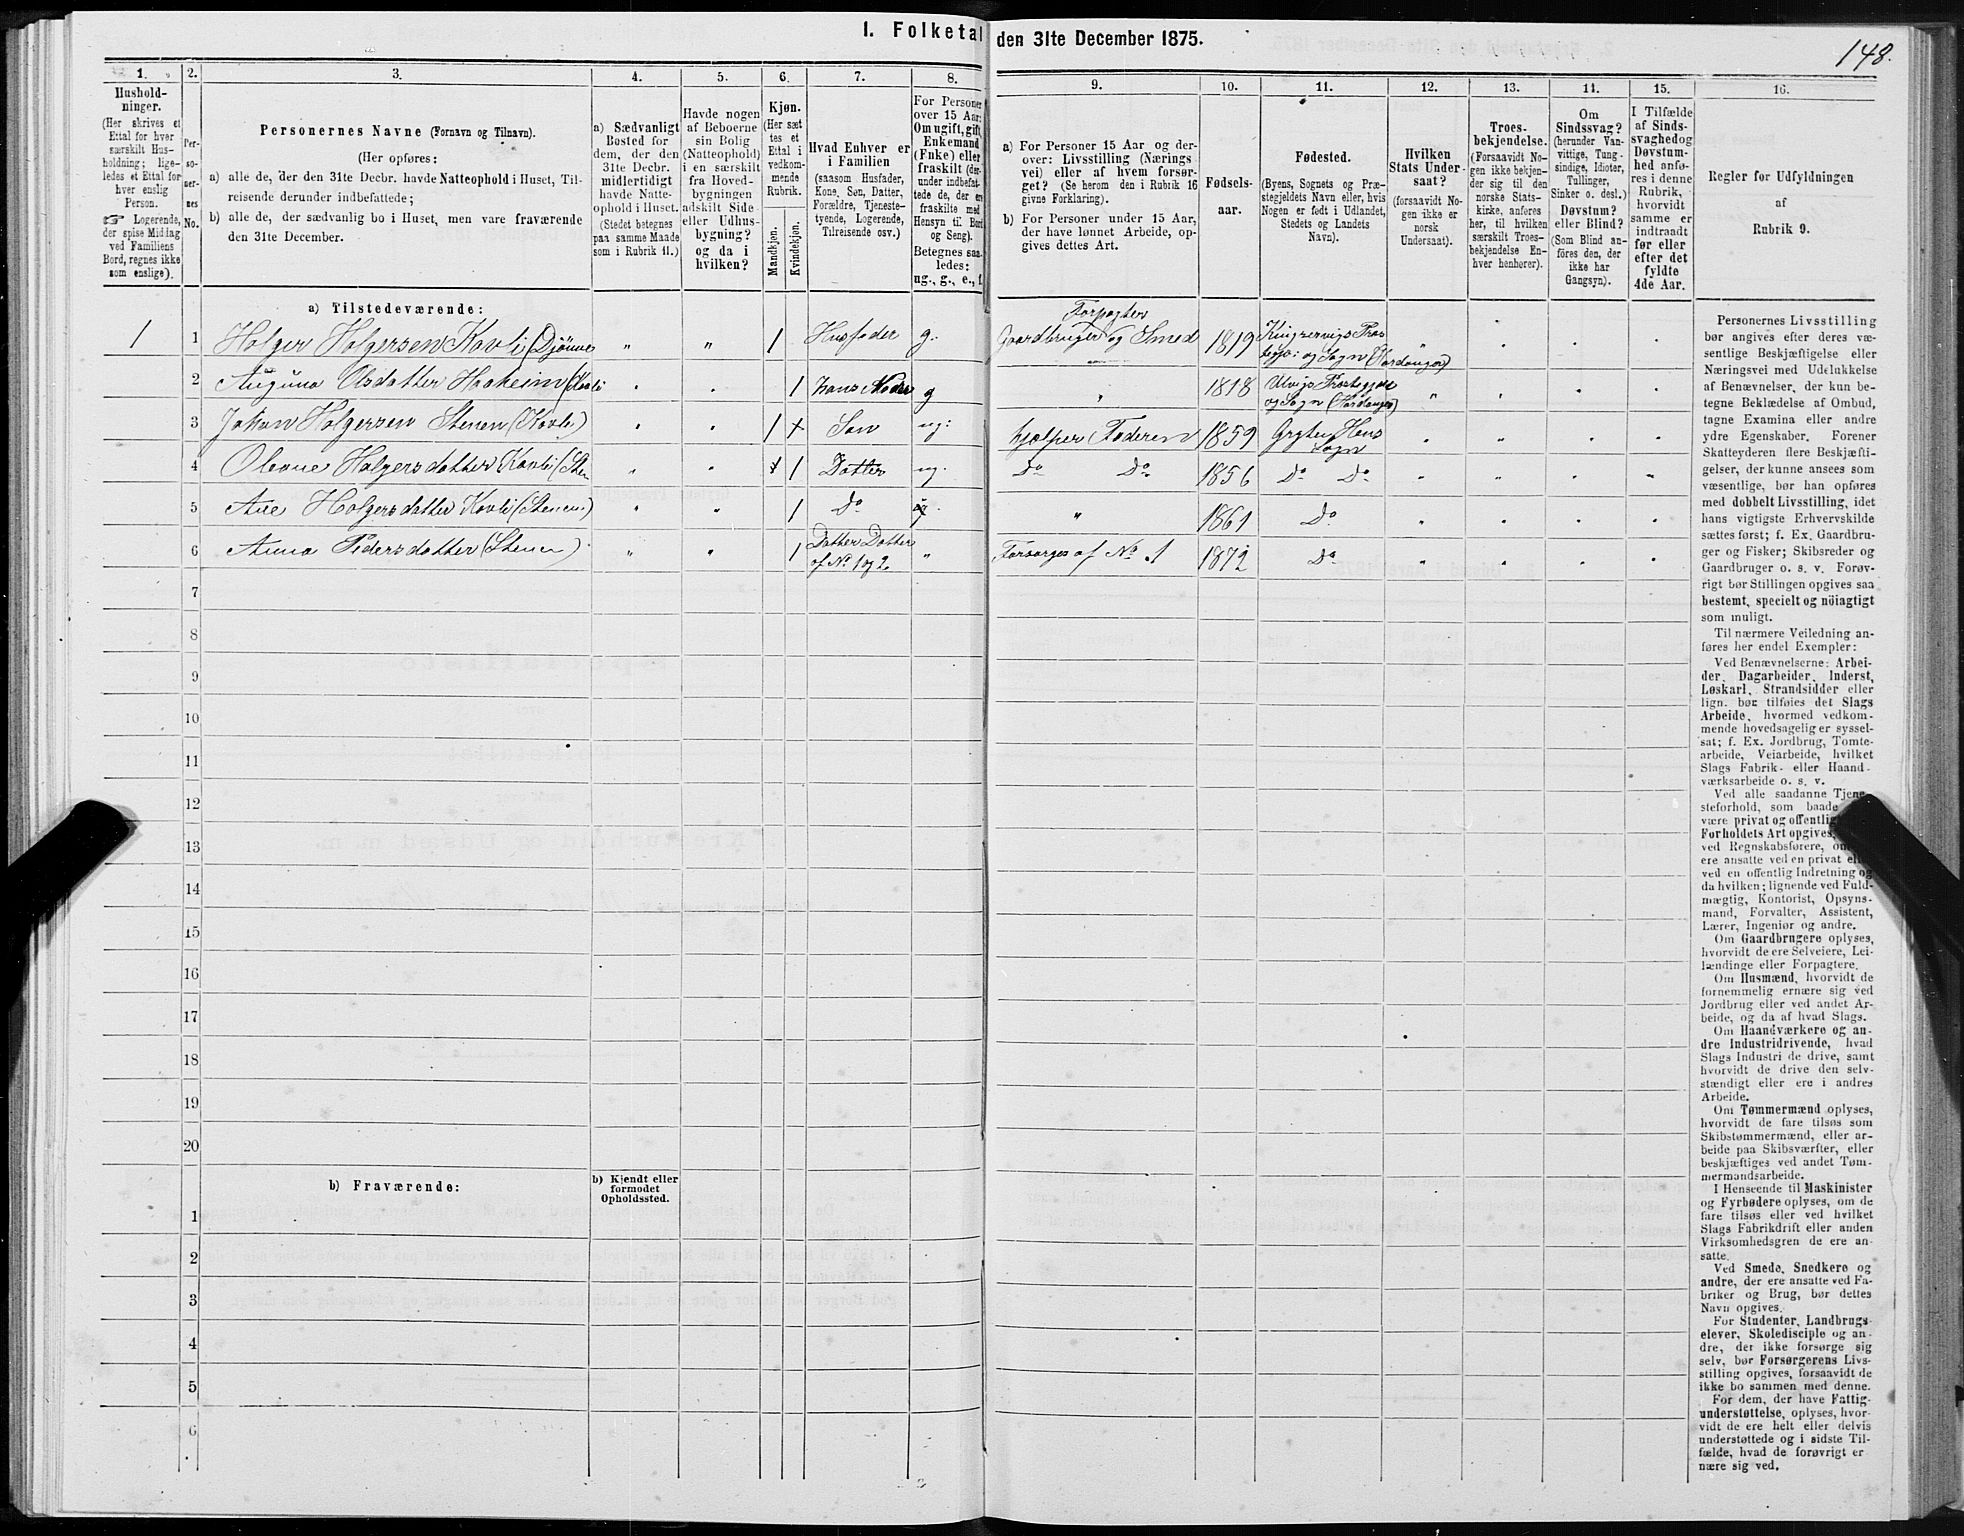 I. Folketal den 31te December 1875.
148.
1.
Hushold-
ninger.
(Her skrives et
Ettal for hver
særskilt Hus-
holdning; lige-
ledes et Ettal for
hver enslig
Person.
☞ Logerende,
der spise Middag
ved Familiens
Bord, regnes ikke
som enslige).
2.
Per-
so-
ner-
nes
No.
3.
Personernes Navne (Fornavn og Tilnavn).
(Her opføres:
a) alle de, der den 31te Decbr. havde Natteophold i Huset, Til-
reisende derunder indbefattede;
b) alle de, der sædvanlig bo i Huset, men vare fraværende
den 31te December.
4.
a) Sædvanligt
Bosted for
dem, der den
31te Decbr.
midlertidigt
havde Natte-
ophold i Huset.
(Stedet betegnes
paa samme Maade
som i Rubrik 11.)
5.
Havde nogen
af Beboerne
sin Bolig
(Natteophold)
i en særskilt
fra Hoved-
bygningen
adskilt Side
eller Udhus-
bygning?
og da i
hvilken?
6.
Kjøn.
(Her sæt
tes et
Ettal i
vedkom-
mende
Rubrik.
Mandkjøn.
Kvindekjøn.
7.
Hvad Enhver er
i Familien
(saasom Husfader,
Kone, Søn, Datter,
Forældre, Tjeneste-
tyende, Logerende,
Tilreisende osv.)
8.
For Personer
over 15 Aar:
Om ugift, gift,
Enkemand
(Enke) eller
fraskilt (der-
under indbefat-
tede de, der ere
fraskilte med
Hensyn til Bord
og Seng).
Betegnes saa-
ledes:
ug., g., e., f.
9.
a) For Personer 15 Aar og der-
over: Livsstilling (Nærings
vei) eller af hvem forsør-
get? (Se herom den i Rubrik 16
givne Forklaring).
b) For Personer under 15 Aar,
der have lønnet Arbeide, op-
gives dettes Art.
10.
Fødsels-
aar.
11.
Fødested.
(Byens, Sognets og Præ-
stegjeldets Navn eller, hvis
Nogen er født i Udlandet,
Stedets og Landets
Navn).
12.
Hvilken
Stats Under-
saat?
(forsaavidt No-
gen ikke er
norsk
Undersaat).
13.
Troes-
bekjendelse.
(Forsaavidt No-
gen ikke bekjen-
der sig til den
norske Stats-
kirke, anføres
her, til hvilken
særskilt Troes-
bekjendelse En-
hver henhører).
14.
Om
Sindssvag?
(herunder Van-
vittige, Tung-
sindige, Idioter,
Tullinger,
Sinker o. desl.)
Døvstum?
eller Blind?
(Som Blind an-
føres den, der
ikke har
Gangsyn).
15.
I Tilfælde
af Sinds-
svaghed og
Døvstum-
hed anfø-
res i denne
Rubrik,
hvorvidt
samme er
indtraadt
før eller
efter det
fyldte
4de Aar.
16.
Regler for Udfyldningen
af
Rubrik 9.
a) Tilstedeværende:
1 1 Holger Holgersen Kovli (Djønne „ „ 1 Husfader g. Forpagter
Gaardbruger og Smed 1819 Kingservigs Præs
tegj: og Sogn (Hardanger)
2 Auguna Olsdatter Haaheim (Kovli „ „ 1 hans Moder g „ 1818 Ulvigs Præstegjeld
og Sogn (Hardanger)
3 Johan Holgersen Stenen (Kovli) „ „ 1 x Søn ug: hjælper Faderen 1859 Gryten Hens
Sogn
4 Oleane Holgersdatter Kovli (Sten „ „ x 1 Datter ug. Do Do 1856 Do Do
5 Ane Holgersdatter Kovli (Stenen) „ „ 1 Do „ 1861 Do
6 Anna Pedersdatter (Stenen) „ „ 1 Datter Datter
af No 1 og 2. „ Forsørges af No 1 1872 Do
7
8
9
10
11
12
13
14
15
16
17
18
19
20
b) Fraværende:
b) Kjendt eller
formodet
Opholdssted.
1
2
3
4
5
6
Personernes Livsstilling
bør angives efter deres væ-
sentlige Beskjæftigelse eller
Næringsvei med Udelukkelse
af Benævnelser, der kun be-
tegne Beklædelse af Ombud,
tagne Examina eller andre
ydre Egenskaber. Forener
Skatteyderen flere Beskjæfti-
gelser, der kunne ansees som
væsentlige, bør han opføres
med dobbelt Livsstilling, idet
hans vigtigste Erhvervskilde
sættes først; f. Ex. Gaardbru-
ger og Fisker; Skibsreder og
Gaardbruger o. s. v. Forøv-
rigt bør Stillingen opgives saa
bestemt, specielt og nöiagtigt
som muligt.
Til nærmere Veiledning an-
føres her endel Exempler:
Ved Benævnelserne: Arbei-
der, Dagarbeider, Inderst,
Løskarl, Strandsidder eller
lign. bør tilføies det Slags
Arbeide, hvormed vedkom-
mende hovedsagelig er syssel-
sat; f. Ex. Jordbrug, Tomte-
arbeide, Veiarbeide, hvilket
Slags Fabrik- eller Haand-
værksarbeide o. s. v.
Ved alle saadanne Tjene-
steforhold, som baade
være privat og offentlig
Forholdets Art opgives,
ved Regnskabsførere,
ere ansatte ved en privat
ved en offentlig Indretning og
da hvilken; lignende ved Fuld-
mægtig, Kontorist, Opsyns-
mand, Forvalter, Assistent,
Lærer, Ingeniør og andre.
Om Gaardbrugere oplyses,
hvorvidt de ere Selveiere, Lei-
lændinge eller Forpagtere.
Om Husmænd, hvorvidt de
fornemmelig ernære sig ved
Jordbrug eller ved andet Ar-
beide, og da af hvad Slags.
Om Haandværkere og an-
dre Industridrivende, hvad
Slags Industri de drive, samt
hvorvidt de drive den selv-
stændigt eller ere i andres
Arbeide.
Om Tømmermænd oplyses,
hvorvidt de fare tilsøs som
Skibstømmermænd, eller ar-
beide paa Skibsværfter, eller
beskjæftiges ved andet Tøm-
mermandsarbeide.
I Henseende til Maskinister
og Fyrbødere oplyses, om de
fare tilsøs eller ved hvilket
Slags Fabrikdrift eller anden
Virksomhedsgren de ere an-
satte.
Ved Smede, Snedkere og
andre, der ere ansatte ved Fa-
briker og Brug, bør dettes
Navn opgives.
For Studenter, Landbrugs-
elever, Skoledisciple og an-
dre, der ikke forsørge sig
selv, bør Forsørgerens Livs-
stilling opgives, forsaavidt de
ikke bo sammen med denne.
For dem, der have Fattig-
understøttelse, oplyses, hvor-
vidt de ere helt eller delvis
understøttede og i sidste Til-
fælde, hvad de forøvrigt er-
nære sig ved.